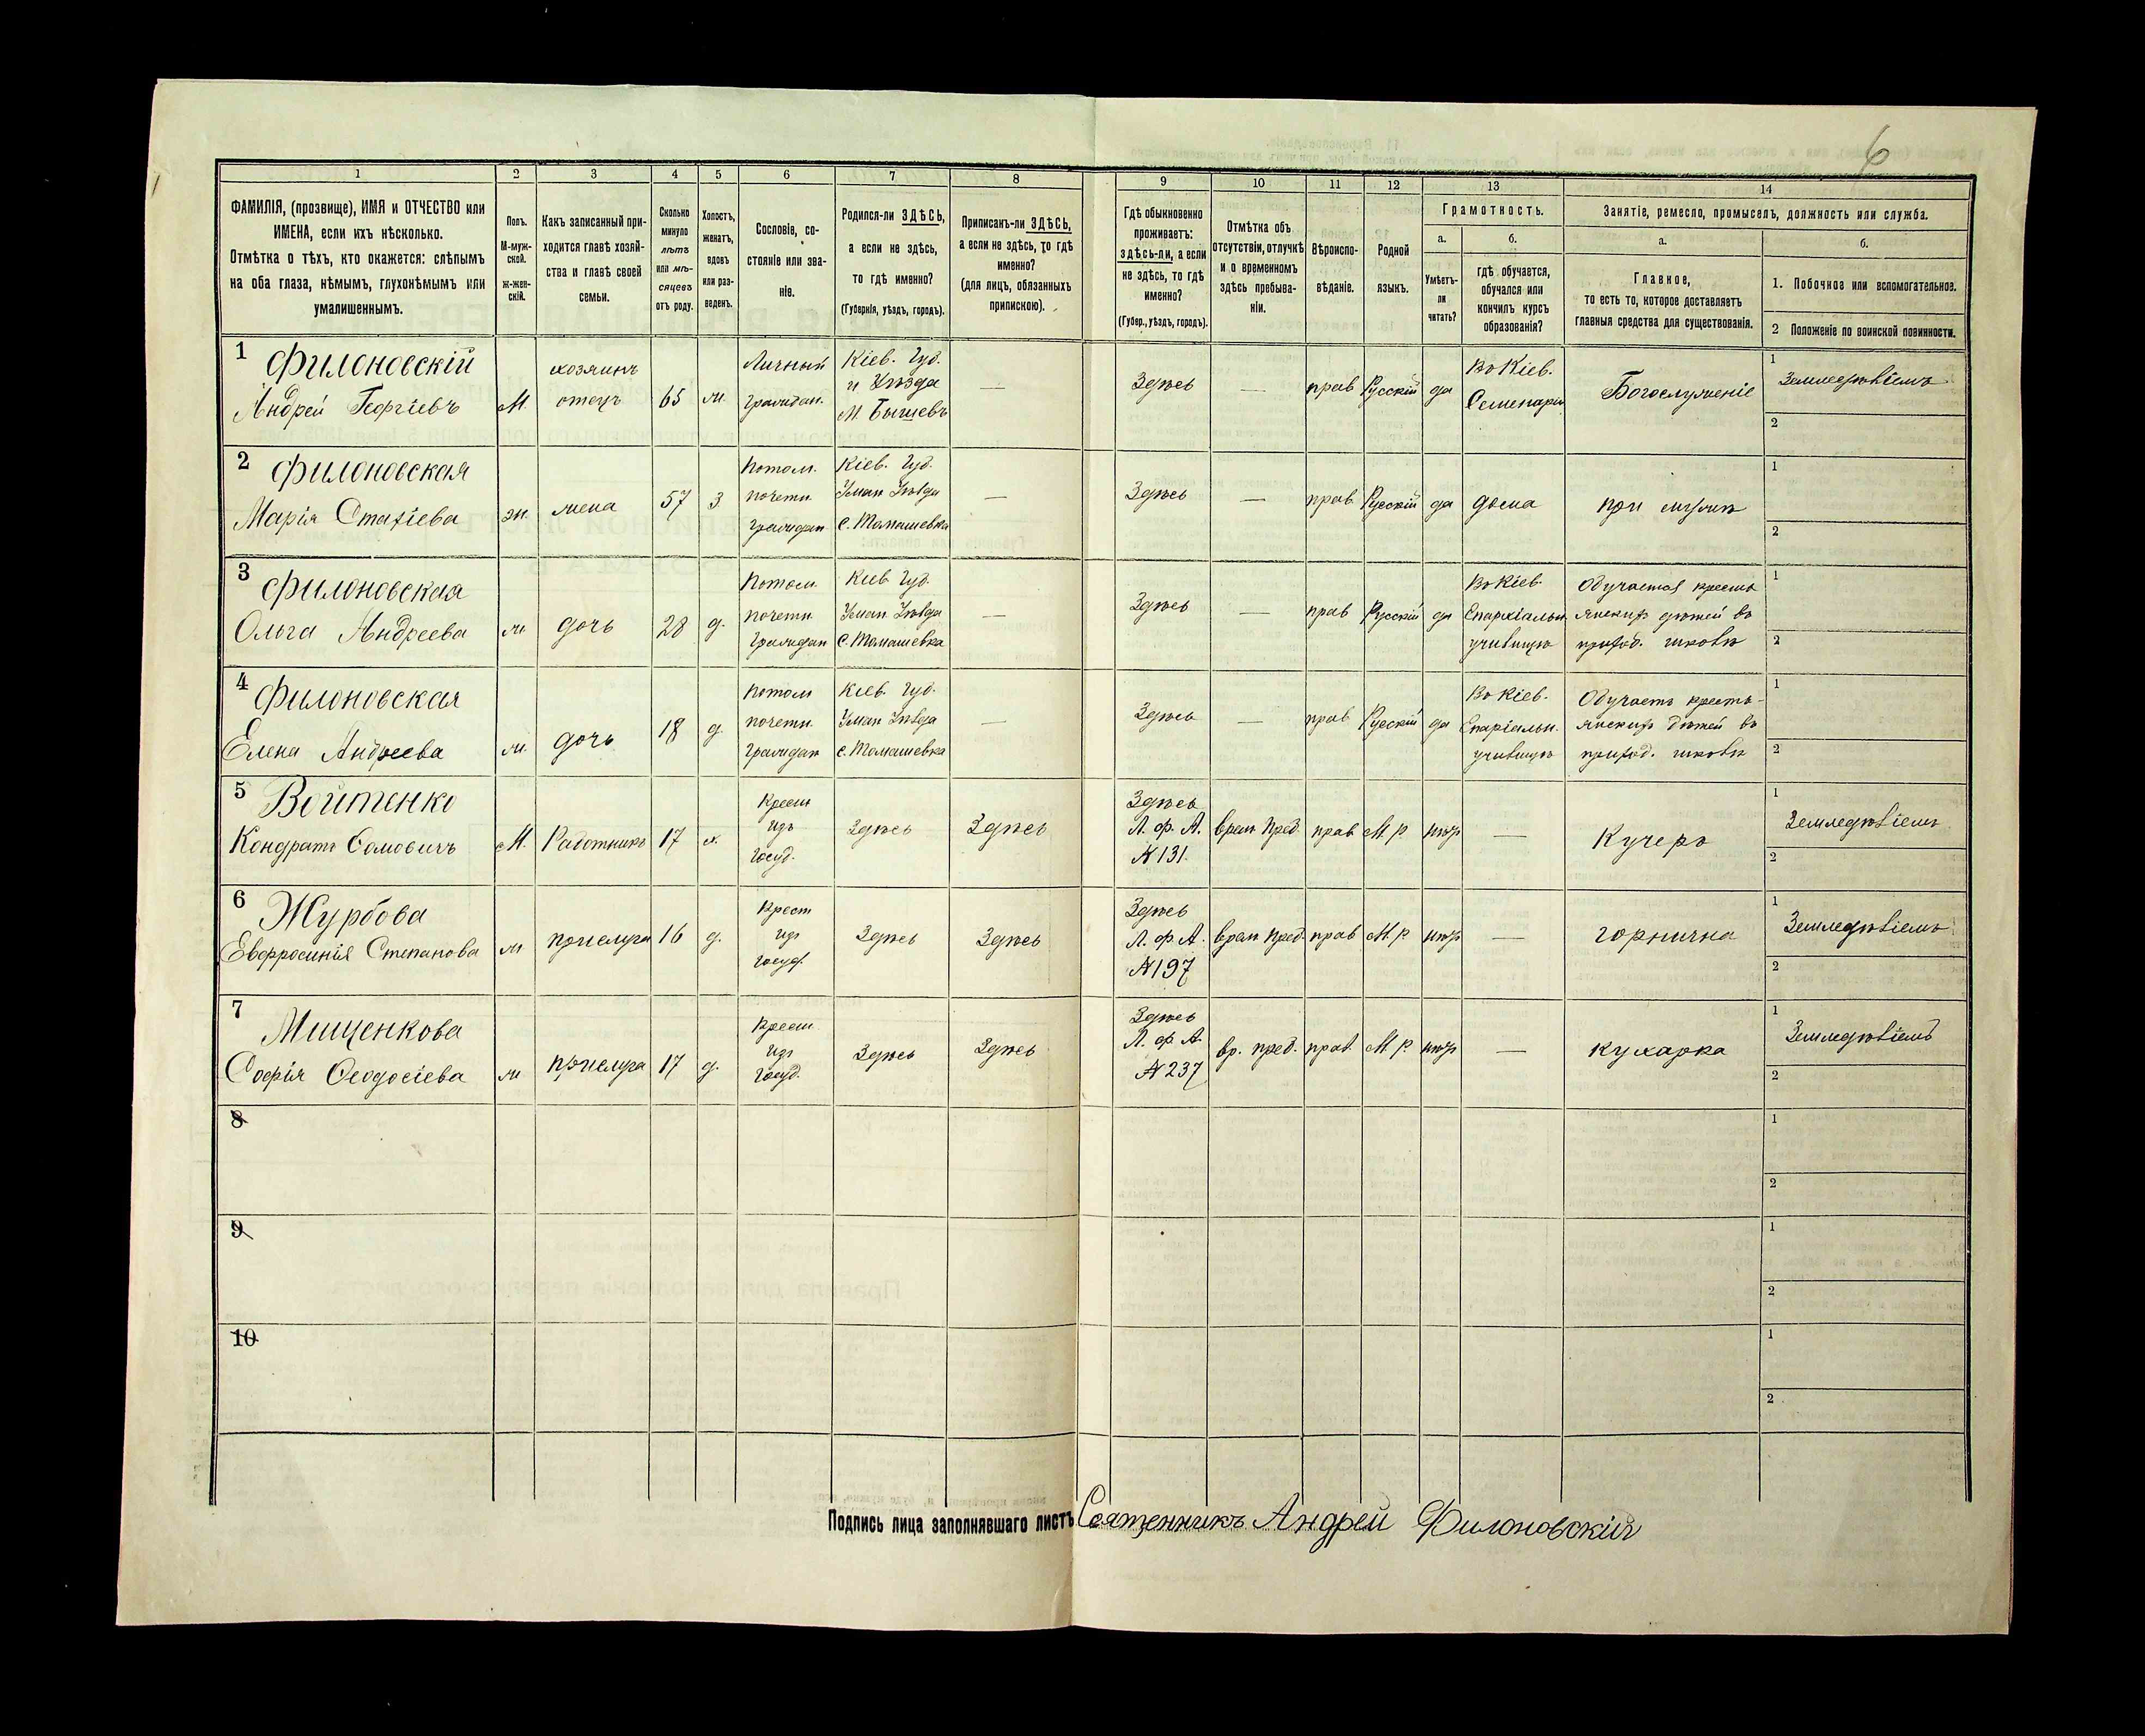 6
1 2 3 4 5 6 7 8 9 10 11 12 13 14
ФАМИЛІЯ, (прозвище), ИМЯ и ОТЧЕСТВО или
ИМЕНА, если ихъ нѣсколько.
Отмѣтка о тѣхъ, кто окажется: слѣпымъ
на оба глаза, нѣмымъ, глухонѣмымъ или
умалишеннымъ.
Полъ.
М-муж-
ской.
ж-жен-
скій.
Какъ записанный при-
ходится главѣ хозяй-
ства и главѣ своей
семьи.
Сколько
минуло
лѣтъ
или мѣ-
сяцевъ
отъ роду.
Холостъ,
женатъ,
вдовъ
или раз-
веденъ.
Сословіе, со-
стояніе или зва-
ніе.
Родился-ли ЗДѢСЬ,
а если не здѣсь,
то гдѣ именно?
(Губернія, уѣздъ, городъ).
Приписанъ-ли ЗДѢСЬ,
а если не здѣсь, то гдѣ
именно?
(для лицъ, обязанныхъ
припискою).
Гдѣ обыкновенно
проживаетъ:
здѣсь-ли, а если
не здѣсь, то гдѣ
именно?
(Губер., уѣздъ, городъ).
Отмѣтка объ
отсутствіи, отлучкѣ
и о временномъ
здѣсь пребыва-
ніи.
Вѣроиспо-
вѣданіе.
Родной
языкъ.
Грамотность.
а.
Умѣетъ-
ли
читать?
б.
гдѣ обучается,
обучался или
кончилъ курсъ
образованія?
Занятіе, ремесло, промыселъ, должность или служба.
а.
Главное,
то есть то, которое доставляетъ
главныя средства для существованія.
б.
1. Побочное или вспомогательное.
2 Положеніе по воинской повинности.
1 Филоновскій
Андрей Георгіевъ
М.
хозяинъ
отецъ
65
ж.
Личный
граждан.
Кіев. Губ.
и Уѣзда
М. Бышевъ
—
Здѣсь
—
прав
Русскій
да
Въ Кіев.
Богослуженіе
1
Земледѣліемъ
2
2 Филоновская
Марія
жена
57
З
Потом.
почетн.
граждан
Кіев. Губ.
Уман Уѣзда
с. Томашевка
—
Здѣсь
—
прав
Русскій
да
дома
при мужѣ
1
2
3 Филоновская
Ольга Андреева
ж.
дочь
28
д.
Потом
почетн.
граждан
Кіев Губ.
Уман Уѣзда
с. Томашевка
—
Здѣсь
—
прав
Русскій
да
Въ Кіев.
Епархіальн
училищѣ
дѣтей въ
приход. школѣ
1
2
4 Филоновская
Елена Андреева
ж.
дочь
18
д.
Потом
почетн.
граждан
Кіев. Губ.
Уман Уѣзда
с. Томашевка
—
Здѣсь
—
прав
Русскій
да
Въ Кіев.
Епархіальн.
училищѣ
Обучаетъ кресть-
янскихъ дѣтей въ
приход. школѣ
1
2
5 Войтенко
Кондратъ
М.
Работникъ
17
х.
Крест
изъ
госуд.
Здѣсь
Здѣсь
Здѣсь
Л. ф. А.
№ 131.
врем преб.
прав
М. р.
нѣт
—
Кучеръ
1
Земледѣліемъ
2
6 Журбова
Евфросинія Степанова
ж
прислуга
16
д.
Крест
изъ
госуд.
Здѣсь
Здѣсь
Здѣсь
Л. ф. А.
№ 197
врем преб.
прав
М. р.
нѣт
—
горнична
1
Земледѣліемъ
2
7 Мищенкова
Софія Феодосіева
ж
прислуга
17
д.
Крест
изъ
госуд.
Здѣсь
Здѣсь
Здѣсь
Л. ф. А.
№ 237
вр. преб.
прав.
М. р.
нѣт
—
кухарка
1
Земледѣліемъ
2
8
1
2
9
1
2
10
1
2
Подпись лица заполнявшаго листъ Священникъ Андрей Филоновскій